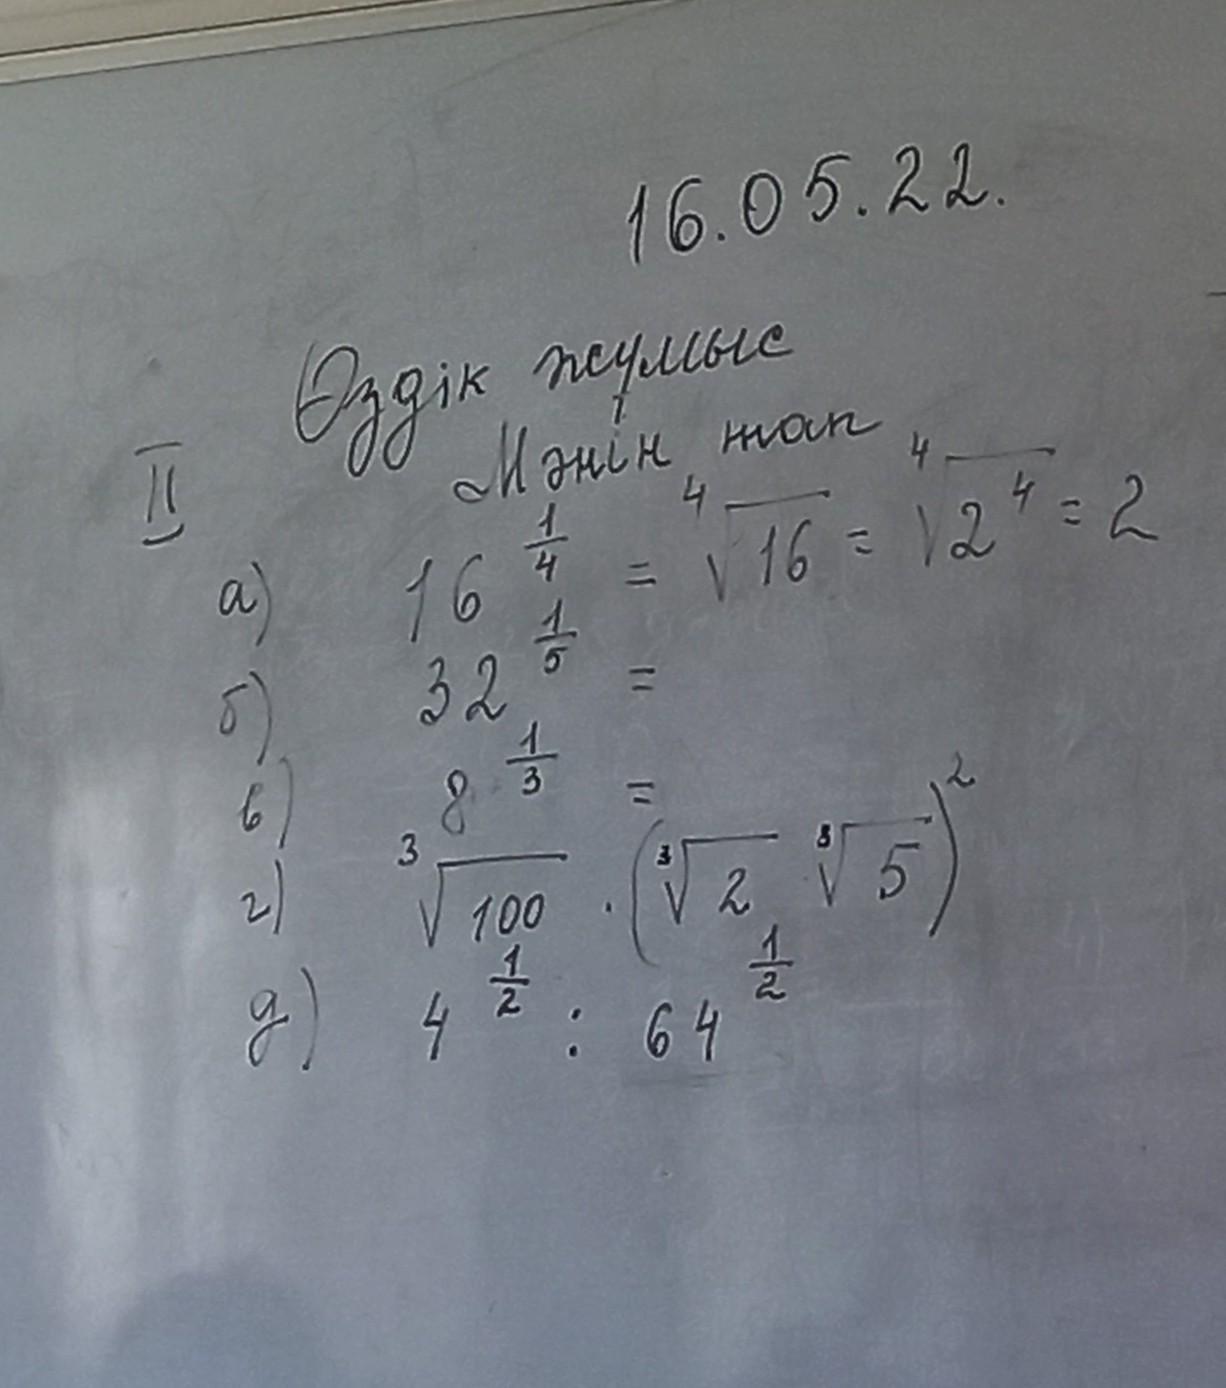 16.05.22.
Өздік жұмыс
II Мәнін тап
а) 16^{\frac{1}{4}} = \sqrt[4]{16} = \sqrt[4]{2^4} = 2
б) 32^{\frac{1}{5}} =
в) 8^{\frac{1}{3}} =
г) \sqrt[3]{100} · (\sqrt[3]{2} \sqrt[3]{5})^2
д) 4^{\frac{1}{2}} : 64^{\frac{1}{2}}